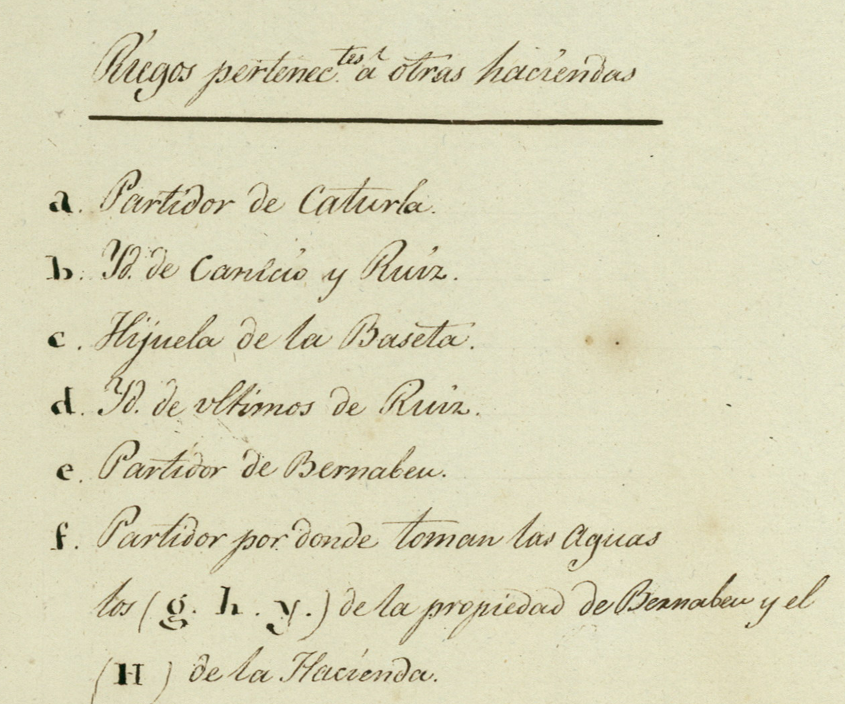 Riegos pertenec.tes á otras haciendas
a. Partidor de Caturla.
b. Yd. de Canicio y Ruiz.
c. Hijuela de la Baseta.
d. Yd. de vltimos de Ruiz.
e. Partidor de Bernabeu.
f. Partidor por donde toman las Aguas
los (g. h. y.) de la propiedad de Bernabeu y el
(H) de la Hacienda.